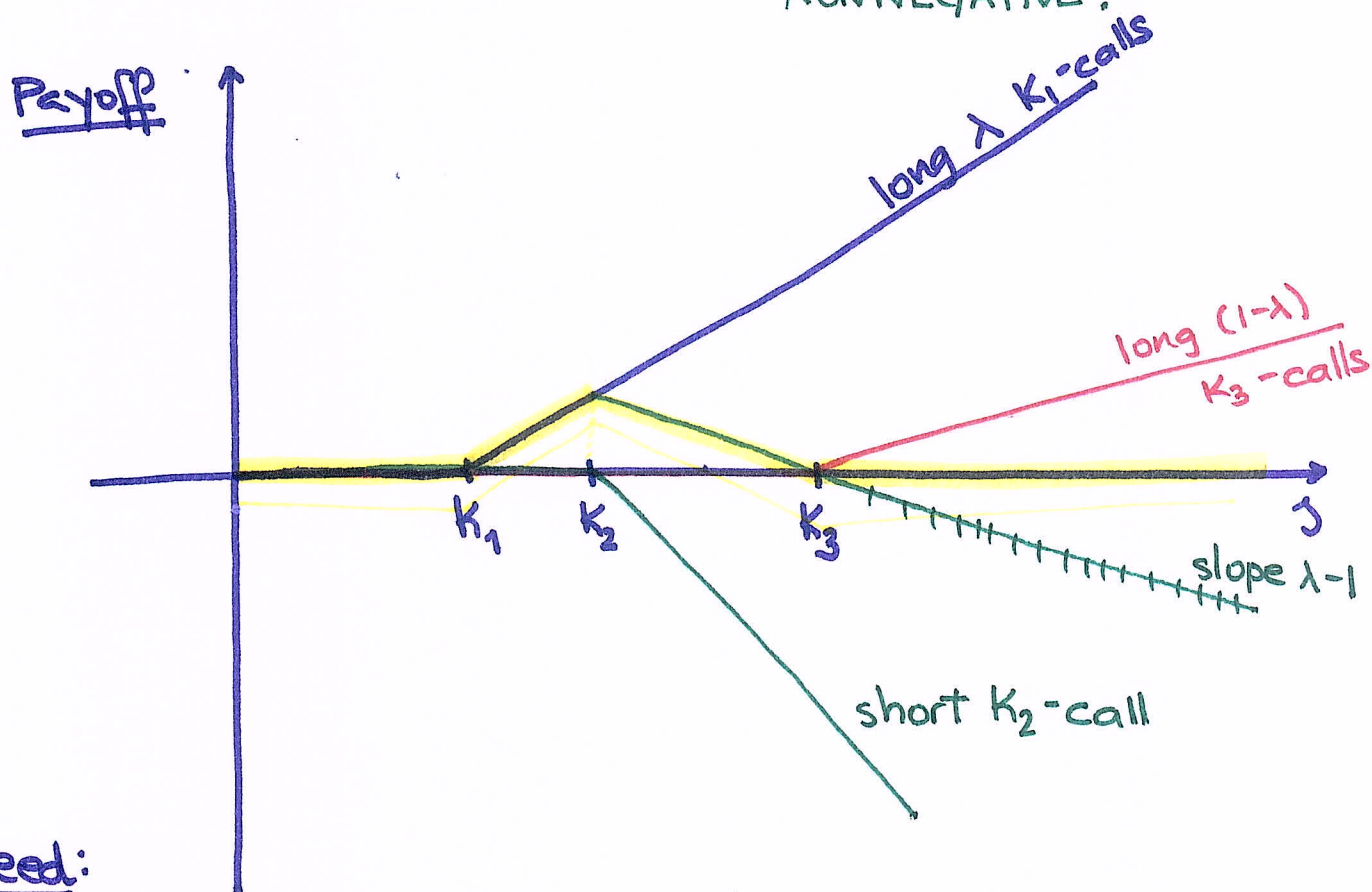 NONNEGATIVE!
Payoff
long λ K₁-calls
long (1-λ)
K₃-calls
K₁
K₂
K₃
slope λ-1
short K₂-call
eed: